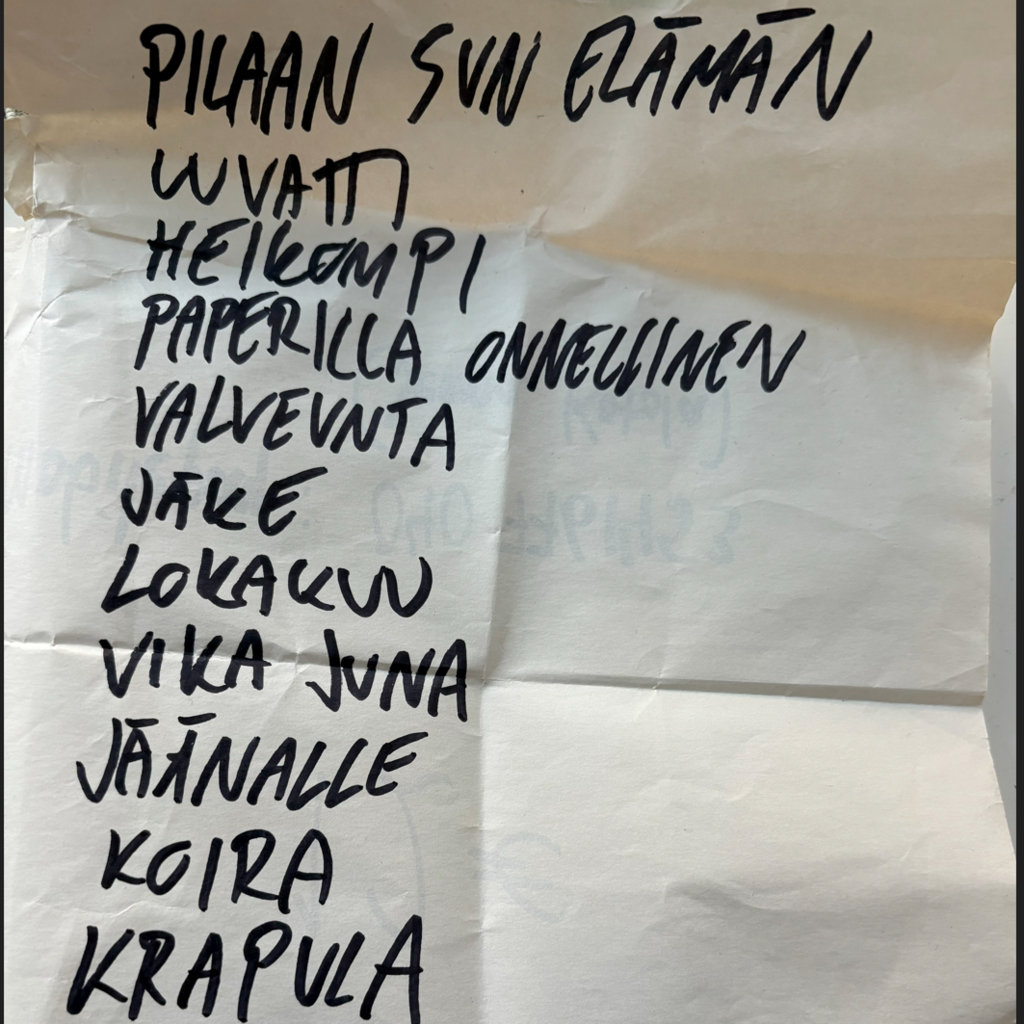 PILAAN SUN ELÄMÄN
LUVATTI
HEIKOMPI
PAPERILLA ONNELLINEN
VALVEUNTA
JÄKE
LOKAKUU
VIKA JUNA
JÄÄNALLE
KOIRA
KRAPULA